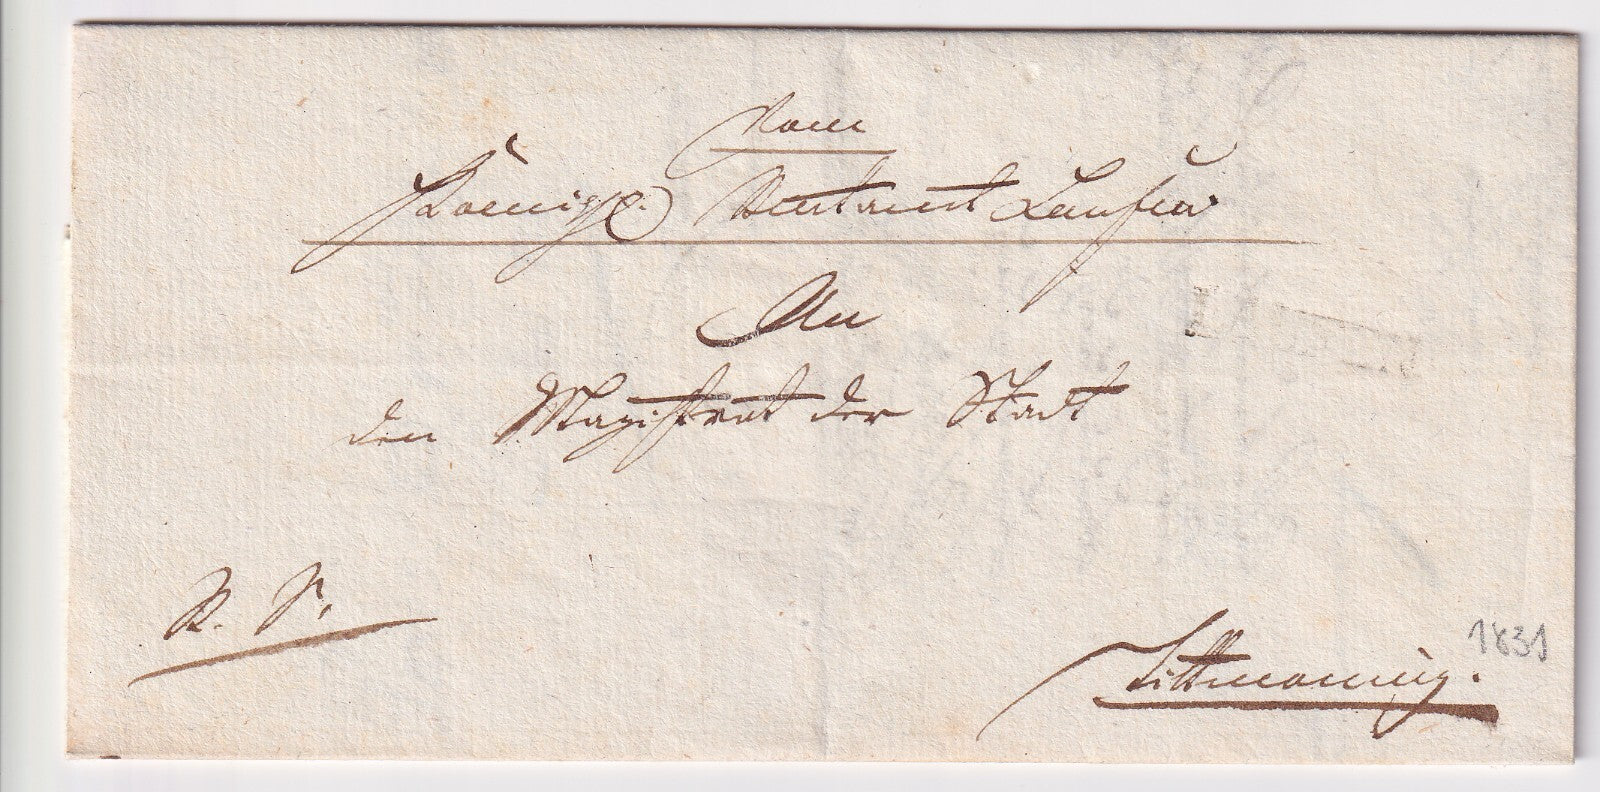 Vom
Koenigl. Rentamt Laufen
An
den Magistrat der Stadt
R. S.
Tittmoning.
1831